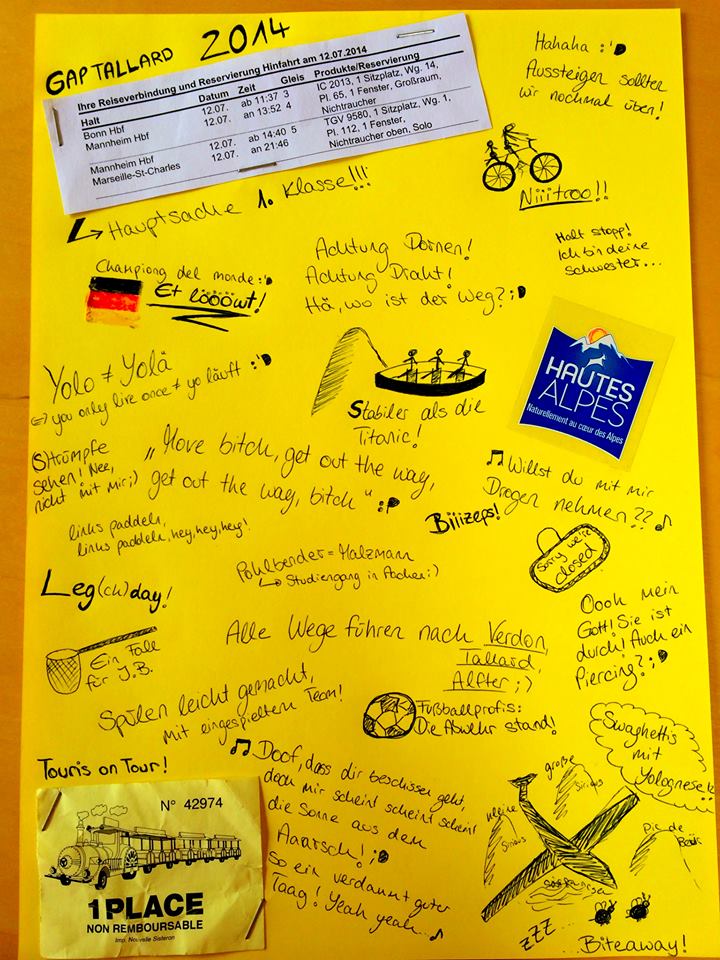 GAP TALLARD 2014
Ihre Reiseverbindung und Reservierung Hinfahrt am 12.07.2014
Halt Datum Zeit Gleis Produkte/Reservierung
Bonn Hbf 12.07. ab 11:37 3 IC 2013, 1 Sitzplatz, Wg. 14,
Mannheim Hbf 12.07. an 13:52 4 Pl. 65, 1 Fenster, Großraum,
Nichtraucher
Mannheim Hbf 12.07. ab 14:40 5 TGV 9580, 1 Sitzplatz, Wg. 1,
Marseille-St-Charles 12.07. an 21:46 Pl. 112, 1 Fenster,
Nichtraucher oben, Solo
Hahaha :'D
Aussteigen sollten
wir nochmal üben!
Niiitroo!!
Hauptsache 1. Klasse!!!
Halt stopp!
Ich bin deine
Schwester...
Championg del monde :'D
Et lööövt!
Achtung Dornen!
Achtung Draht!
Hä, wo ist der Weg? ;D
HAUTES
ALPES
Naturellement au cœur des Alpes
Yolo ≠ Yolä
⇔ you only live once ≠ yo läuft :'D
Stabiler als die
Titanic!
(S)trümpfe
sehen! Nee,
nicht mit mir ;)
„Move bitch, get out the way,
get out the way, bitch“ :P
Willst du mit mir
Drogen nehmen??
Biiizeps!
links paddeln,
links paddeln, hey, hey, hey!
Sorry we're
closed
Pohlbender = Malzmann
Studiengang in Aachen :)
Leg(ch)day!
Oooh mein
Gott! Sie ist
durch! Auch ein
Piercing? ;D
Alle Wege führen nach Verdon,
Tallard,
Alfter ;)
Ein Fall
für J.B.
Spülen leicht gemacht,
mit eingespieltem Team!
Fußballprofis:
Die Abwehr stand!
Swaghettis
mit
Yolognese!!
Touris on Tour!
Doof, dass dir beschissen geht,
doch mir scheint scheint scheint
die Sonne aus dem
Aaarsch! ;D
So ein verdammt guter
Taag! Yeah yeah...
große
Sirious
kleine
Sirious
Pic de
N° 42974
1 PLACE
NON REMBOURSABLE
Imp. Nouvelle Sisteron
zzz
...Biteaway!